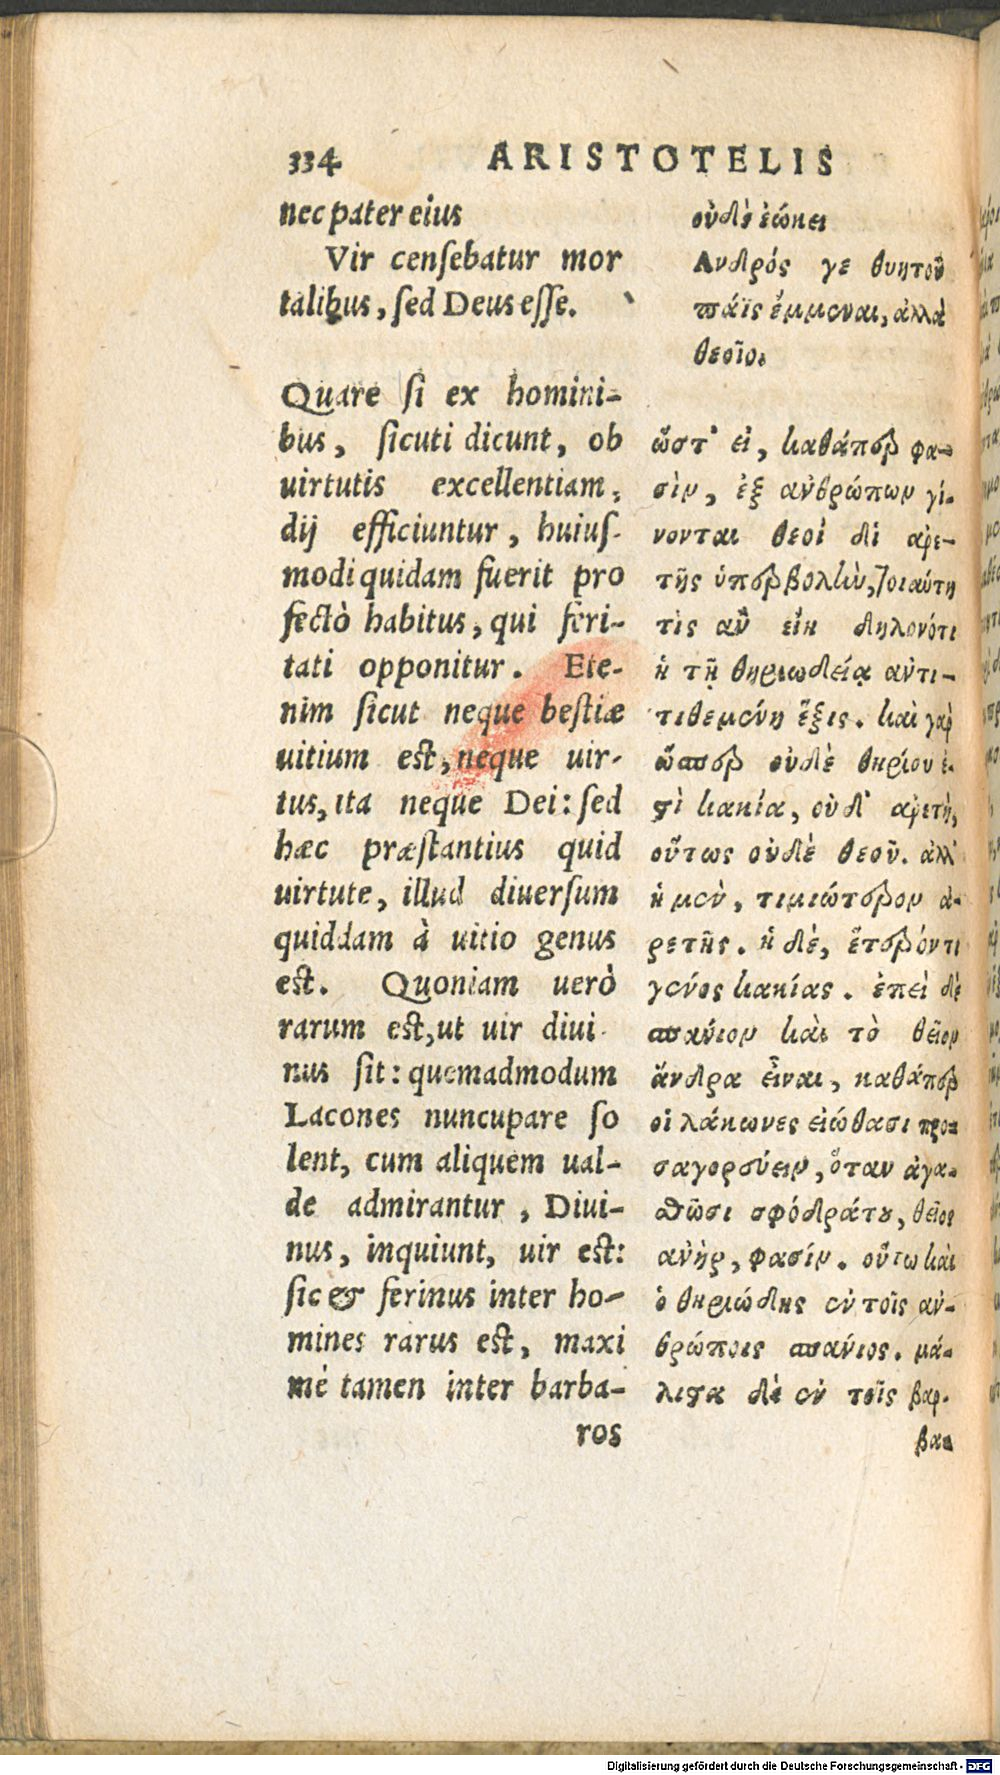 334 ARISTOTELIS
nec pater eius
Vir censebatur mor
talibus, sed Deus esse.
Quare si ex homini-
bus, sicuti dicunt, ob
uirtutis excellentiam,
dij efficiuntur, huius-
modi quidam fuerit pro
fectò habitus, qui feri-
tati opponitur. Ete-
nim sicut neque bestiæ
uitium est, neque uir-
tus, ita neque Dei: sed
hæc præstantius quid
uirtute, illud diuersum
quiddam à uitio genus
est. Quoniam uerò
rarum est, ut uir diui-
nus sit: quemadmodum
Lacones nuncupare so
lent, cum aliquem ual-
de admirantur, Diui-
nus, inquiunt, uir est:
sic & ferinus inter ho-
mines rarus est, maxi
mè tamen inter barba-
ros
οὐδὲ ἐώκει
Ανδρός γε θνητοῦ
πάϊς ἔμμεναι, ἀλλὰ
θεοῖο.
ὥστ' εἰ, καθάπερ φα-
σὶν, ἐξ ἀνθρώπων γί-
νονται θεοὶ δι ἀρε-
τῆς ὑπερβολὴν, τοιαύτη
τὶς ἂν εἴη δηλονότι
ἡ τῇ θηριωδείᾳ ἀντι-
τιθεμένη ἕξις. καὶ γὰρ
ὥσπερ οὐδὲ θηρίου ἐ-
στὶ κακία, οὐδ' ἀρετὴ,
οὕτως οὐδὲ θεοῦ. ἀλλ'
ἡ μὲν, τιμιώτερον ἀ-
ρετῆς. ἡ δὲ, ἕτερόν τι
γένος κακίας. ἐπεὶ δὲ
σπάνιον καὶ τὸ θεῖον
ἄνδρα εἶναι, καθάπερ
οἱ λάκωνες εἰώθασι προσ
σαγορεύειν, ὅταν ἀγα-
σθῶσι σφόδρά του, θεῖος
ἀνὴρ, φασίν. οὕτω καὶ
ὁ θηριώδης ἐν τοῖς ἀν-
θρώποις σπάνιος. μά-
λιστα δὲ ἐν τοῖς βαρ-
βα-
Digitalisierung gefördert durch die Deutsche Forschungsgemeinschaft - DFG